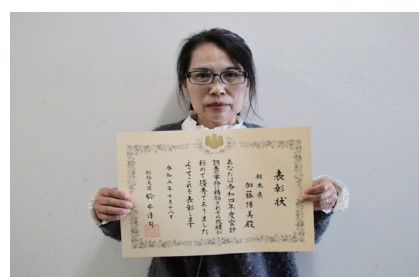 表彰状
栃木県
加藤博美殿
あなたは令和四年度家計
調査事務に精励されその成績が
極めて優秀でありました
よってこれを表彰します
令和五年十月十八日
総務大臣 鈴木淳司